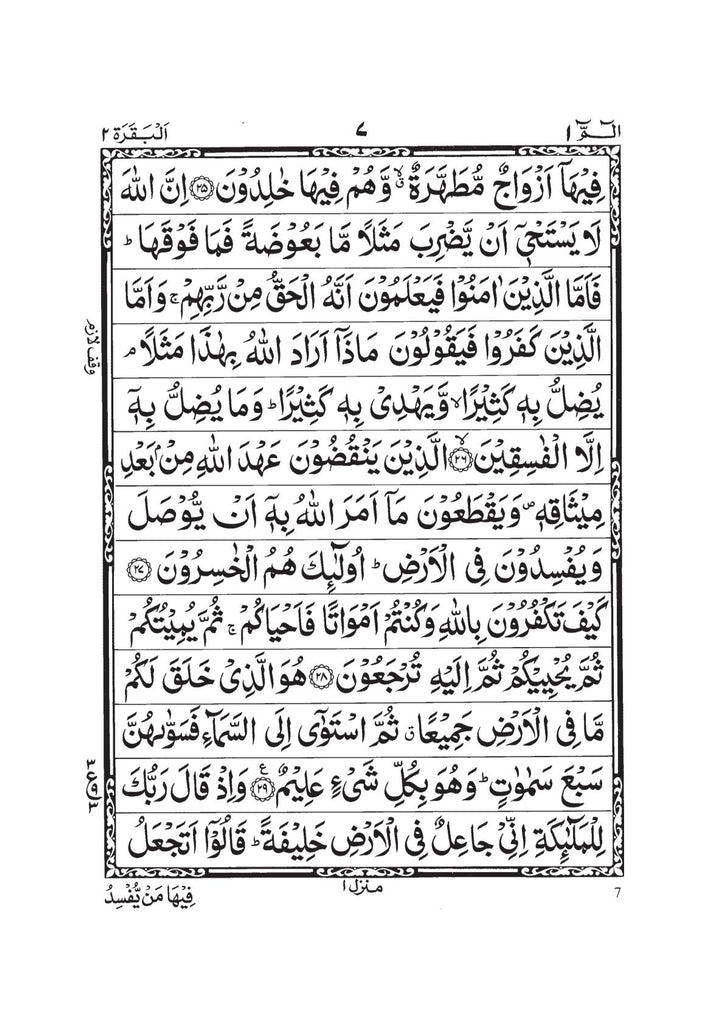 الٓمّٓ ١
٧
اَلْبَقَرَة ٢
فِيْهَاۤ اَزْوَاجٌ مُّطَهَّرَةٌ ۙۗ وَّهُمْ فِيْهَا خٰلِدُوْنَ ﴿۲۵﴾ اِنَّ اللّٰهَ
لَا يَسْتَحْيٖۤ اَنْ يَّضْرِبَ مَثَلًا مَّا بَعُوْضَةً فَمَا فَوْقَهَا ؕ
فَاَمَّا الَّذِيْنَ اٰمَنُوْا فَيَعْلَمُوْنَ اَنَّهُ الْحَقُّ مِنْ رَّبِّهِمْ ۚ وَاَمَّا
الَّذِيْنَ كَفَرُوْا فَيَقُوْلُوْنَ مَاذَاۤ اَرَادَ اللّٰهُ بِهٰذَا مَثَلًا ۘ
يُضِلُّ بِهٖ كَثِيْرًا ۙ وَّيَهْدِىْ بِهٖ كَثِيْرًا ؕ وَمَا يُضِلُّ بِهٖۤ
اِلَّا الْفٰسِقِيْنَ ﴿۲۶﴾ ۙ الَّذِيْنَ يَنْقُضُوْنَ عَهْدَ اللّٰهِ مِنْۢ بَعْدِ
مِيْثَاقِهٖ ۪ وَيَقْطَعُوْنَ مَاۤ اَمَرَ اللّٰهُ بِهٖۤ اَنْ يُّوْصَلَ
وَيُفْسِدُوْنَ فِى الْاَرْضِ ؕ اُولٰٓئِكَ هُمُ الْخٰسِرُوْنَ ﴿۲۷﴾
كَيْفَ تَكْفُرُوْنَ بِاللّٰهِ وَكُنْتُمْ اَمْوَاتًا فَاَحْيَاكُمْ ۚ ثُمَّ يُمِيْتُكُمْ
ثُمَّ يُحْيِيْكُمْ ثُمَّ اِلَيْهِ تُرْجَعُوْنَ ﴿۲۸﴾ هُوَ الَّذِىْ خَلَقَ لَكُمْ
مَّا فِى الْاَرْضِ جَمِيْعًا ۗ ثُمَّ اسْتَوٰۤى اِلَى السَّمَآءِ فَسَوّٰىهُنَّ
سَبْعَ سَمٰوٰتٍ ؕ وَهُوَ بِكُلِّ شَىْءٍ عَلِيْمٌ ﴿۲۹﴾ ع وَاِذْ قَالَ رَبُّكَ
لِلْمَلٰٓئِكَةِ اِنِّىْ جَاعِلٌ فِى الْاَرْضِ خَلِيْفَةً ؕ قَالُوْۤا اَتَجْعَلُ
وقف لازم
٣
ع ٩
٣
منزل ١
فِيْهَا مَنْ يُّفْسِدُ
7